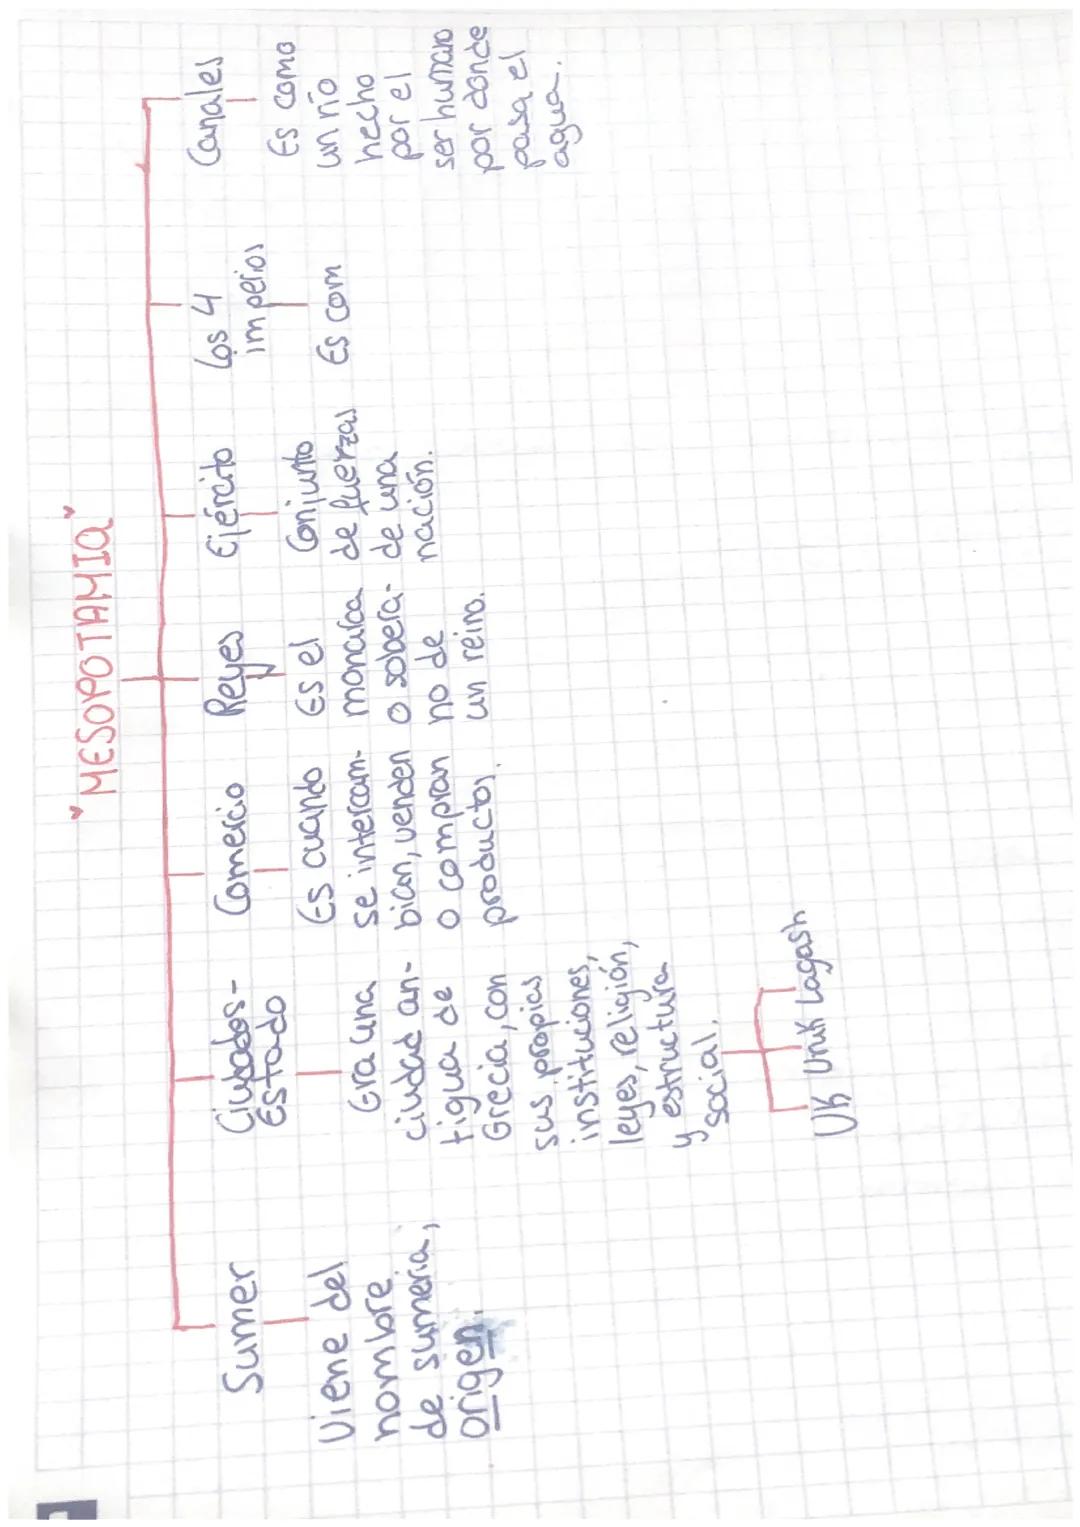 "MESOPOTAMIA"
Sumer
Viene del
nombre
de sumeria,
origen.
Ciudados-
Estado
Era una
ciudad an-
tigua de
Grecia, con
sus propias
instituciones,
leyes, religión,
y estructura
social.
Uruk Lagash
Comercio
Es cuando
se intercam-
bian, venden
o compran
productos.
Reyes
Es el
monarca
o sobera-
no de
un reino.
Ejército
Conjunto
de fuerzas
de una
nación.
Los 4
imperios
Es com
Canales
Es como
un río
hecho
por el
ser humano
por donde
pasa el
agua.